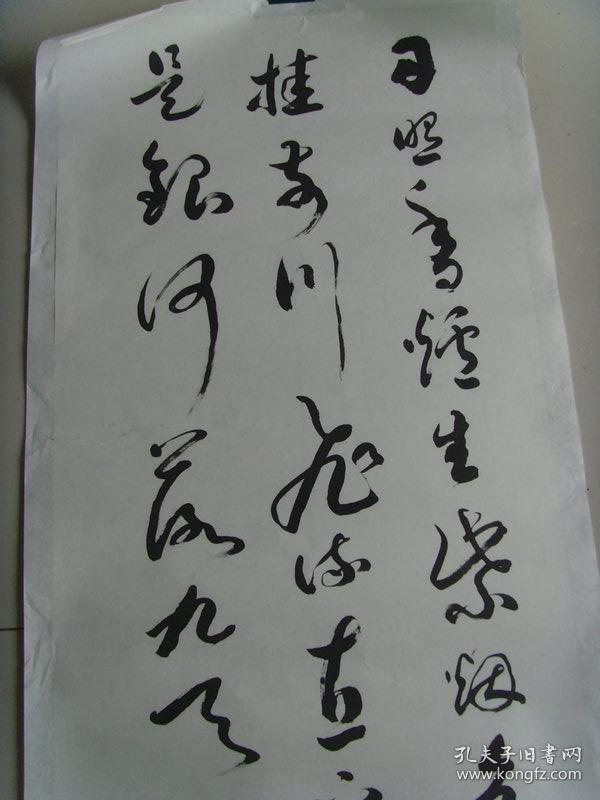 日照香爐生紫烟
挂前川飛流直
是銀河落九天
孔夫子旧书网
www.kongfz.com